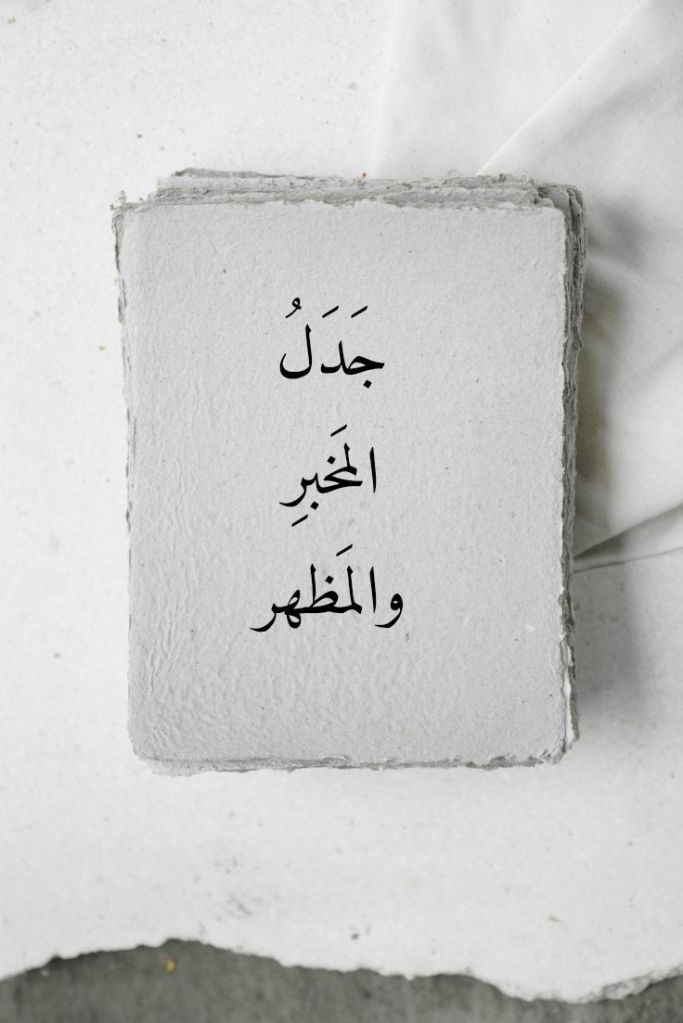 جَدَلُ
المَخبرِ
والمَظهر